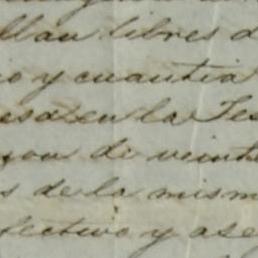 llan libres d
io y cuantia
esa en la Tes
de veinte
s de la mism
fectivo y ase